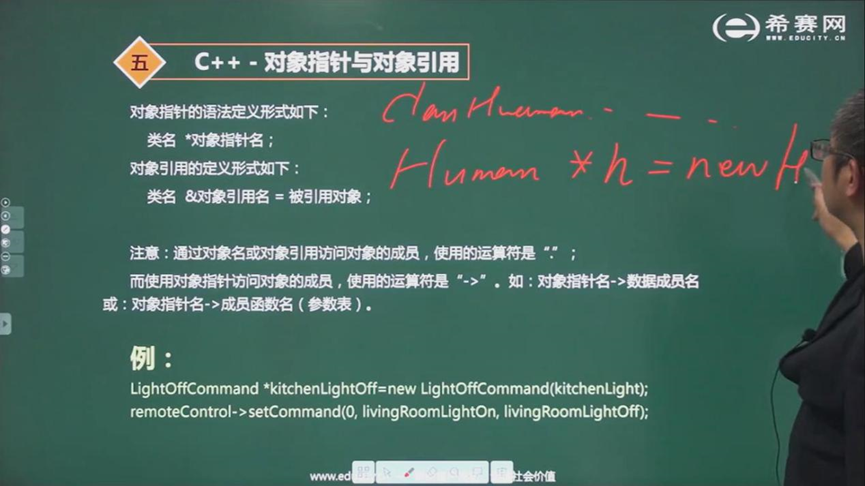 希赛网
WWW.EDUCITY.CN
五 C++ - 对象指针与对象引用
对象指针的语法定义形式如下：
类名 *对象指针名；
对象引用的定义形式如下：
类名 &对象引用名 = 被引用对象；
Human *h = new H
注意：通过对象名或对象引用访问对象的成员，使用的运算符是“.”；
而使用对象指针访问对象的成员，使用的运算符是“->”。如：对象指针名->数据成员名
或：对象指针名->成员函数名（参数表）。
例：
LightOffCommand *kitchenLightOff=new LightOffCommand(kitchenLight);
remoteControl->setCommand(0, livingRoomLightOn, livingRoomLightOff);
社会价值